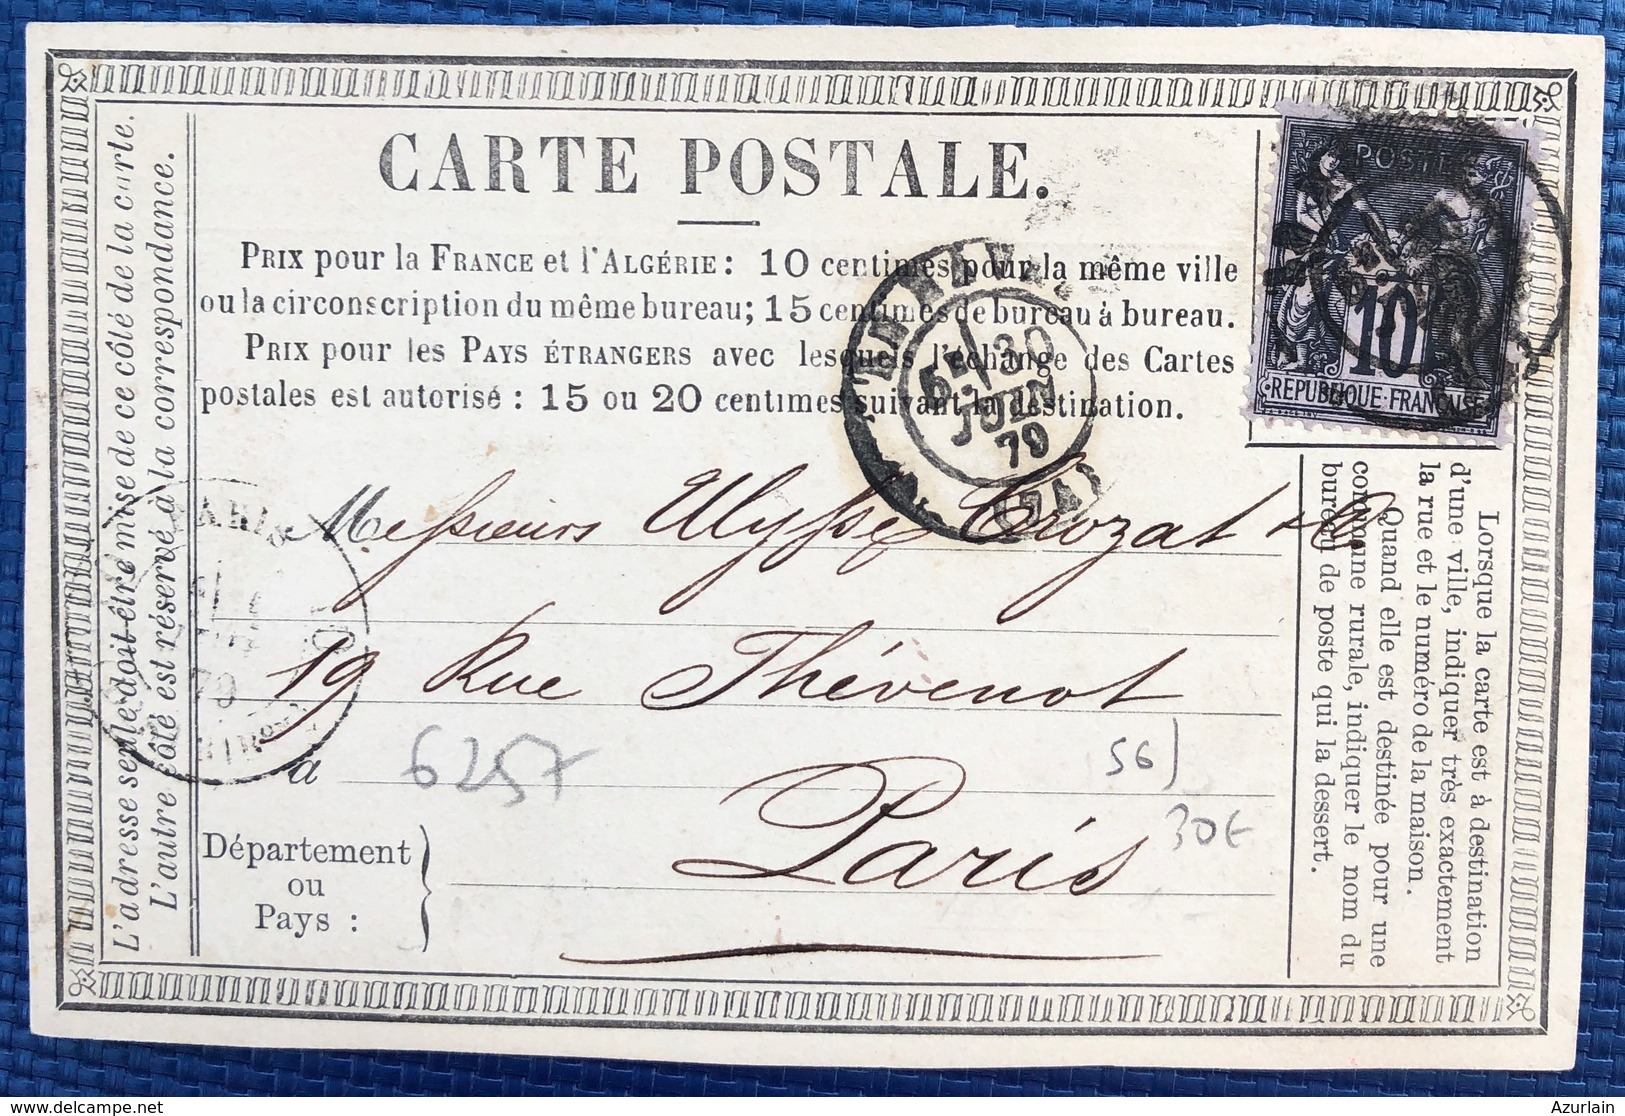 CARTE POSTALE.
PRIX pour la FRANCE et l'ALGÉRIE : 10 centimes pour la même ville
ou la circonscription du même bureau; 15 centimes de bureau à bureau.
PRIX pour les PAYS ÉTRANGERS avec lesquels l'échange des Cartes
postales est autorisé : 15 ou 20 centimes suivant la destination.
POSTE
10
REPUBLIQUE FRANÇAISE
5E/30
JUIN
79
(74)
Messieurs Ulysse Crozat & C.
19 Rue Thévenot
à
Paris
6257
56)
30€
Département
ou
Pays :
L'adresse seule doit être mise de ce côté de la carte.
L'autre côté est réservé à la correspondance.
PARIS
79
Lorsque la carte est à destination
d'une ville, indiquer très exactement
la rue et le numéro de la maison.
Quand elle est destinée pour une
commune rurale, indiquer le nom du
bureau de poste qui la dessert.
delcampe.net
Azurlain